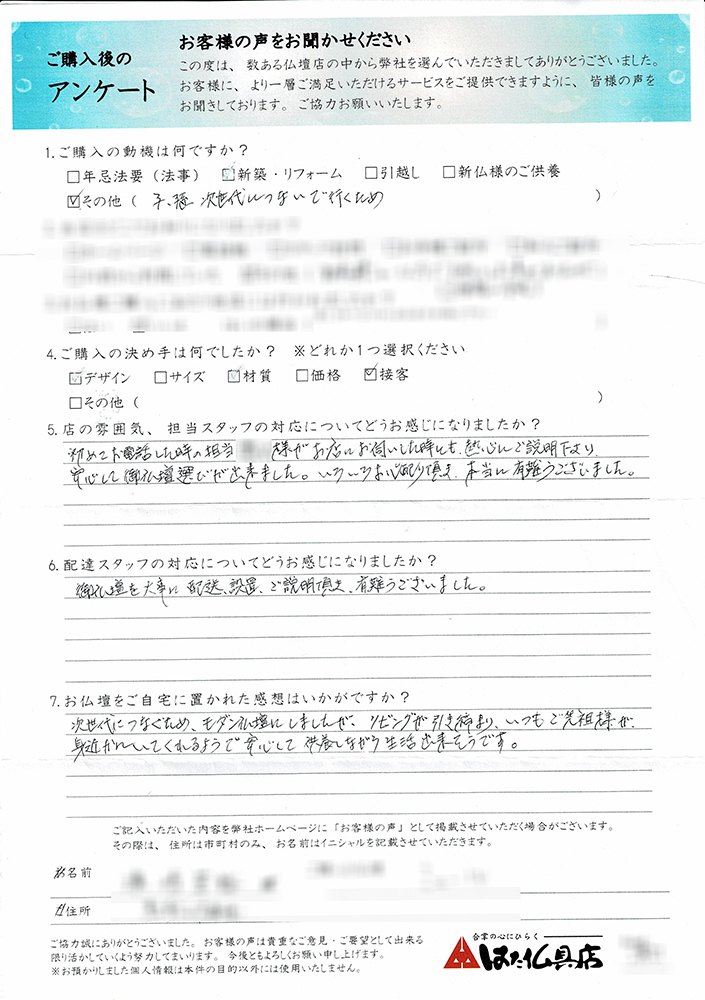 ご購入後の
アンケート
お客様の声をお聞かせください
この度は、数ある仏壇店の中から弊社を選んでいただきましてありがとうございました。
お客様に、より一層ご満足いただけるサービスをご提供できますように、皆様の声を
お聞きしております。ご協力お願いいたします。
1.ご購入の動機は何ですか?
□年忌法要(法事) ☑新築・リフォーム □引越し □新仏様のご供養
☑その他( 子、孫、次世代につないで行くため )
4.ご購入の決め手は何でしたか? ※どれか1つ選択ください
☑デザイン □サイズ ☑材質 □価格 ☑接客
□その他( )
5.店の雰囲気、担当スタッフの対応についてどうお感じになりましたか?
初めてお電話した時の担当 様がお店にお伺いした時にも、熱心にご説明下より、
安心して御仏壇選びが出来ました。いろいろお心配り頂き、本当に有難うございました。
6.配達スタッフの対応についてどうお感じになりましたか?
御仏壇を大事に配送、設置、ご説明頂き、有難うございました。
7.お仏壇をご自宅に置かれた感想はいかがですか?
次世代につなぐため、モダン仏壇にしましたが、リビングが引き締まり、いつもご先祖様が、
身近かにいてくれるようで安心して供養しながら生活出来そうです。
ご記入いただいた内容を弊社ホームページに「お客様の声」として掲載させていただく場合がございます。
その際は、住所は市町村のみ、お名前はイニシャルを記載させていただきます。
お名前
ご住所
ご協力誠にありがとうございました。お客様の声は貴重なご意見・ご要望として出来る
限り活かしていくよう努力してまいります。今後ともよろしくお願い申し上げます。
※お預かりしました個人情報は本件の目的以外には使用いたしません。
合掌の心にひらく
はた仏具店